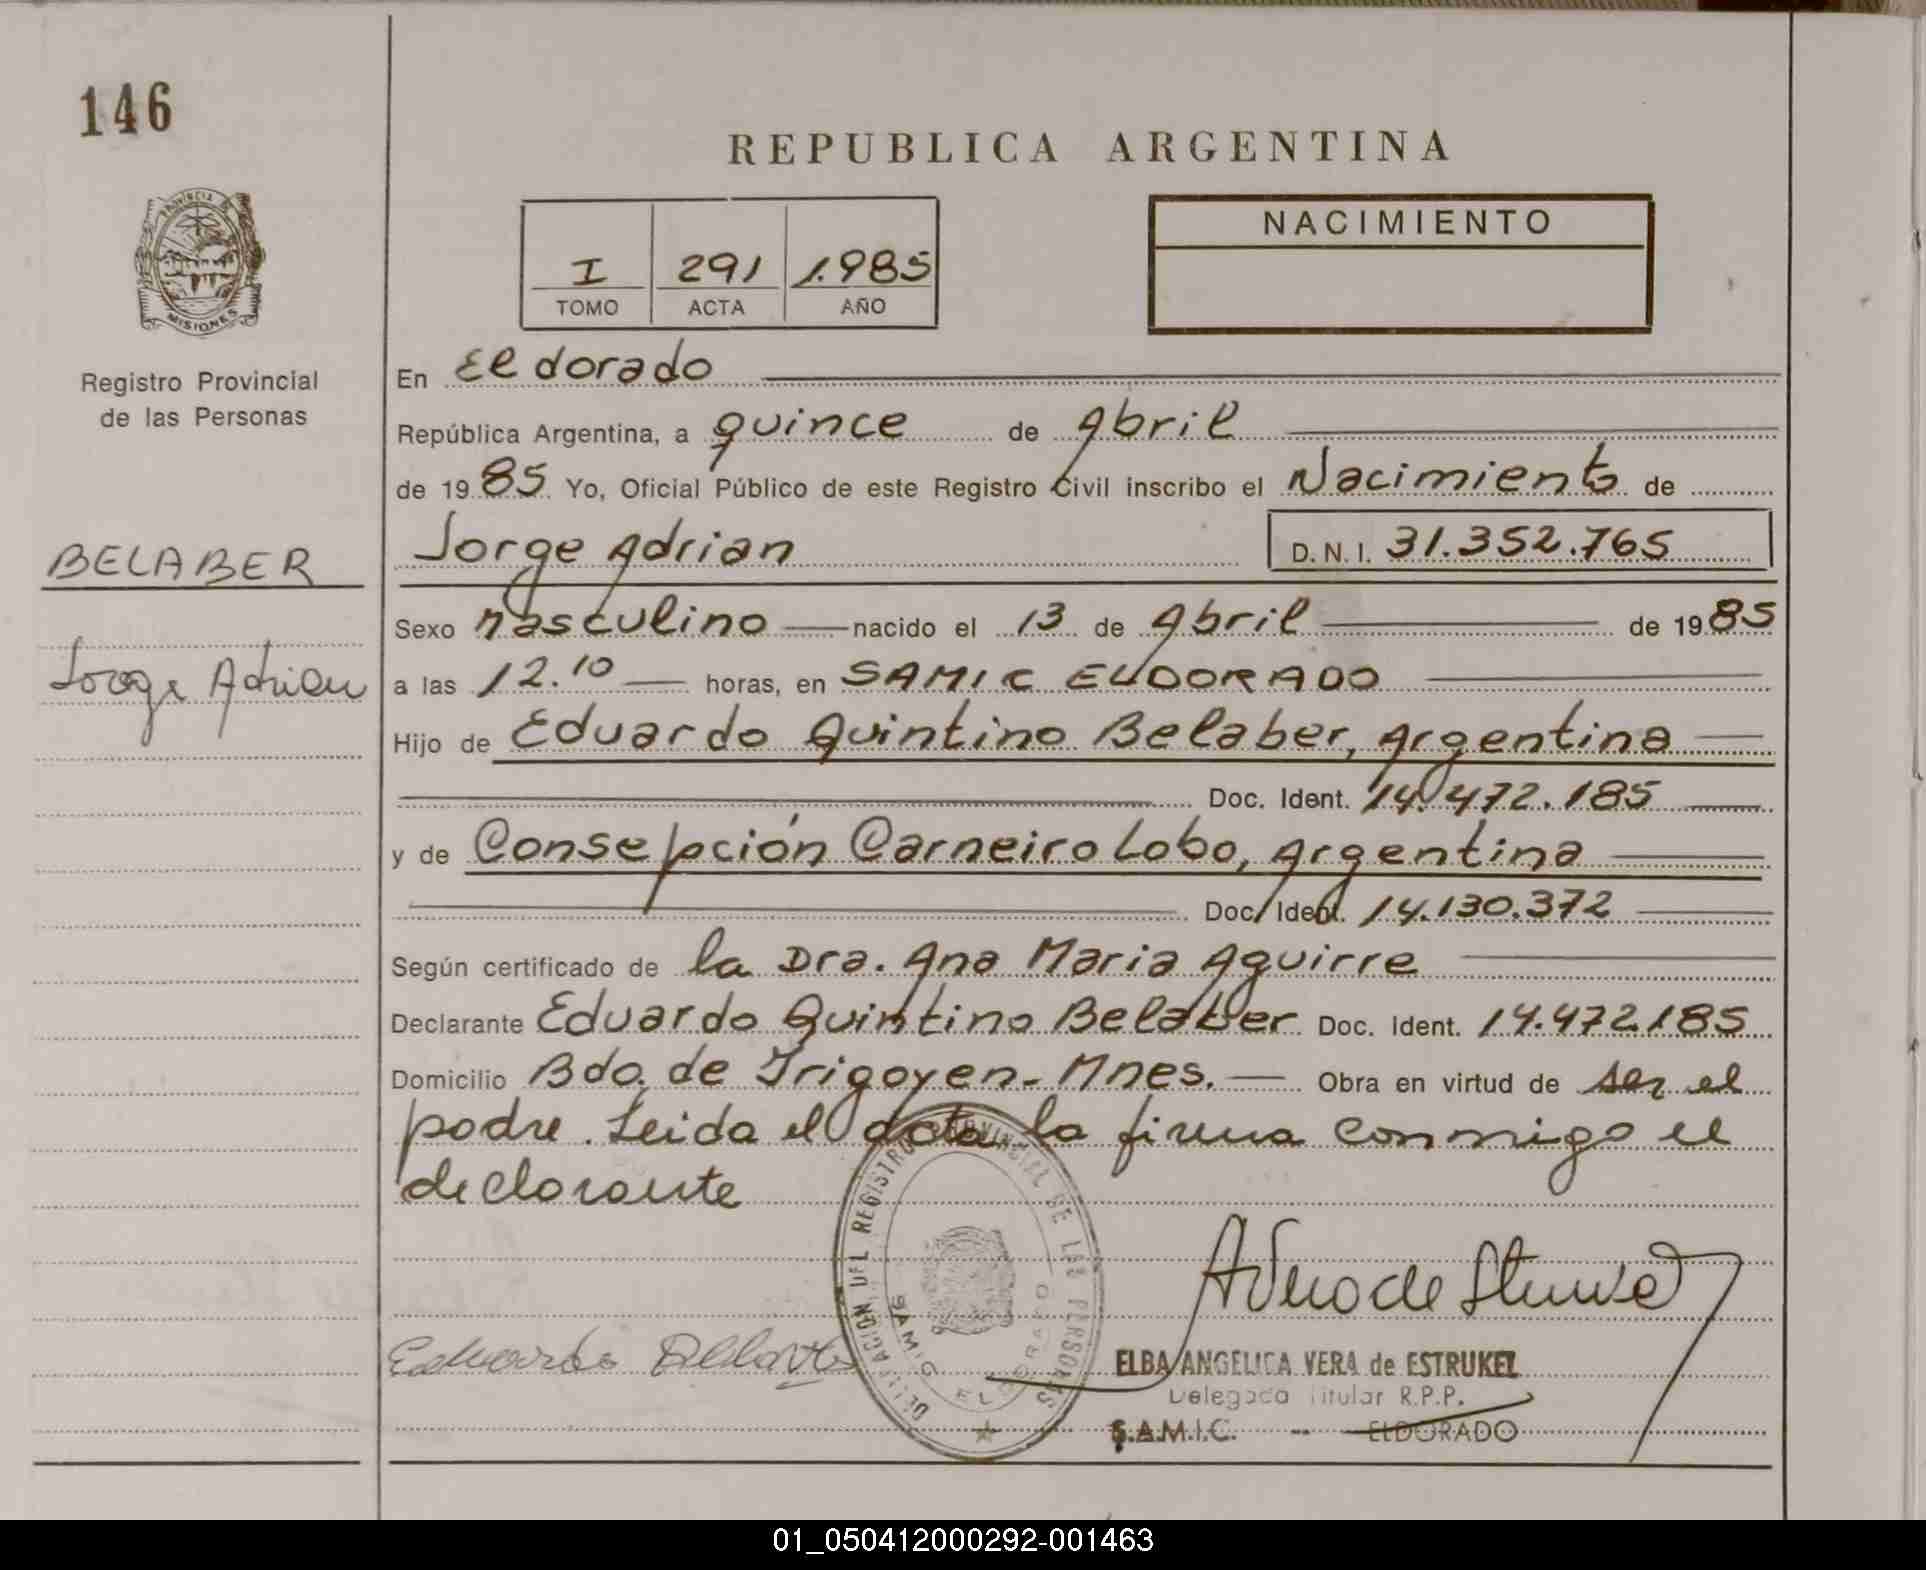 146
REPUBLICA ARGENTINA
PROVINCIA DE
MISIONES
Registro Provincial
de las Personas
I 291 1.985
TOMO ACTA AÑO
NACIMIENTO
En Eldorado
República Argentina, a quince de Abril
de 1985 Yo, Oficial Público de este Registro Civil inscribo el Nacimiento de
Jorge Adrian D.N.I. 31.352.765
BELABER
Jorge Adrian
Sexo Masculino nacido el 13 de Abril de 1985
a las 12.10 horas, en SAMIC ELDORADO
Hijo de Eduardo Quintino Belaber, Argentina
Doc. Ident. 14.472.185
y de Consepción Carneiro Lobo, Argentina
Doc. Ident. 14.130.372
Según certificado de la Dra. Ana Maria Aguirre
Declarante Eduardo Quintino Belaber Doc. Ident. 14.472.185
Domicilio Bdo. de Irigoyen - Mnes. Obra en virtud de ser el
padre. Leida el acta la firma conmigo el
declarante
DELEGACION DEL REGISTRO PROVINCIAL DE LAS PERSONAS
SAMIC ELDORADO
A Vera de
Eduardo
ELBA ANGELICA VERA de ESTRUKEL
Delegada Titular R.P.P.
S.A.M.I.C. -- ELDORADO
01_050412000292-001463